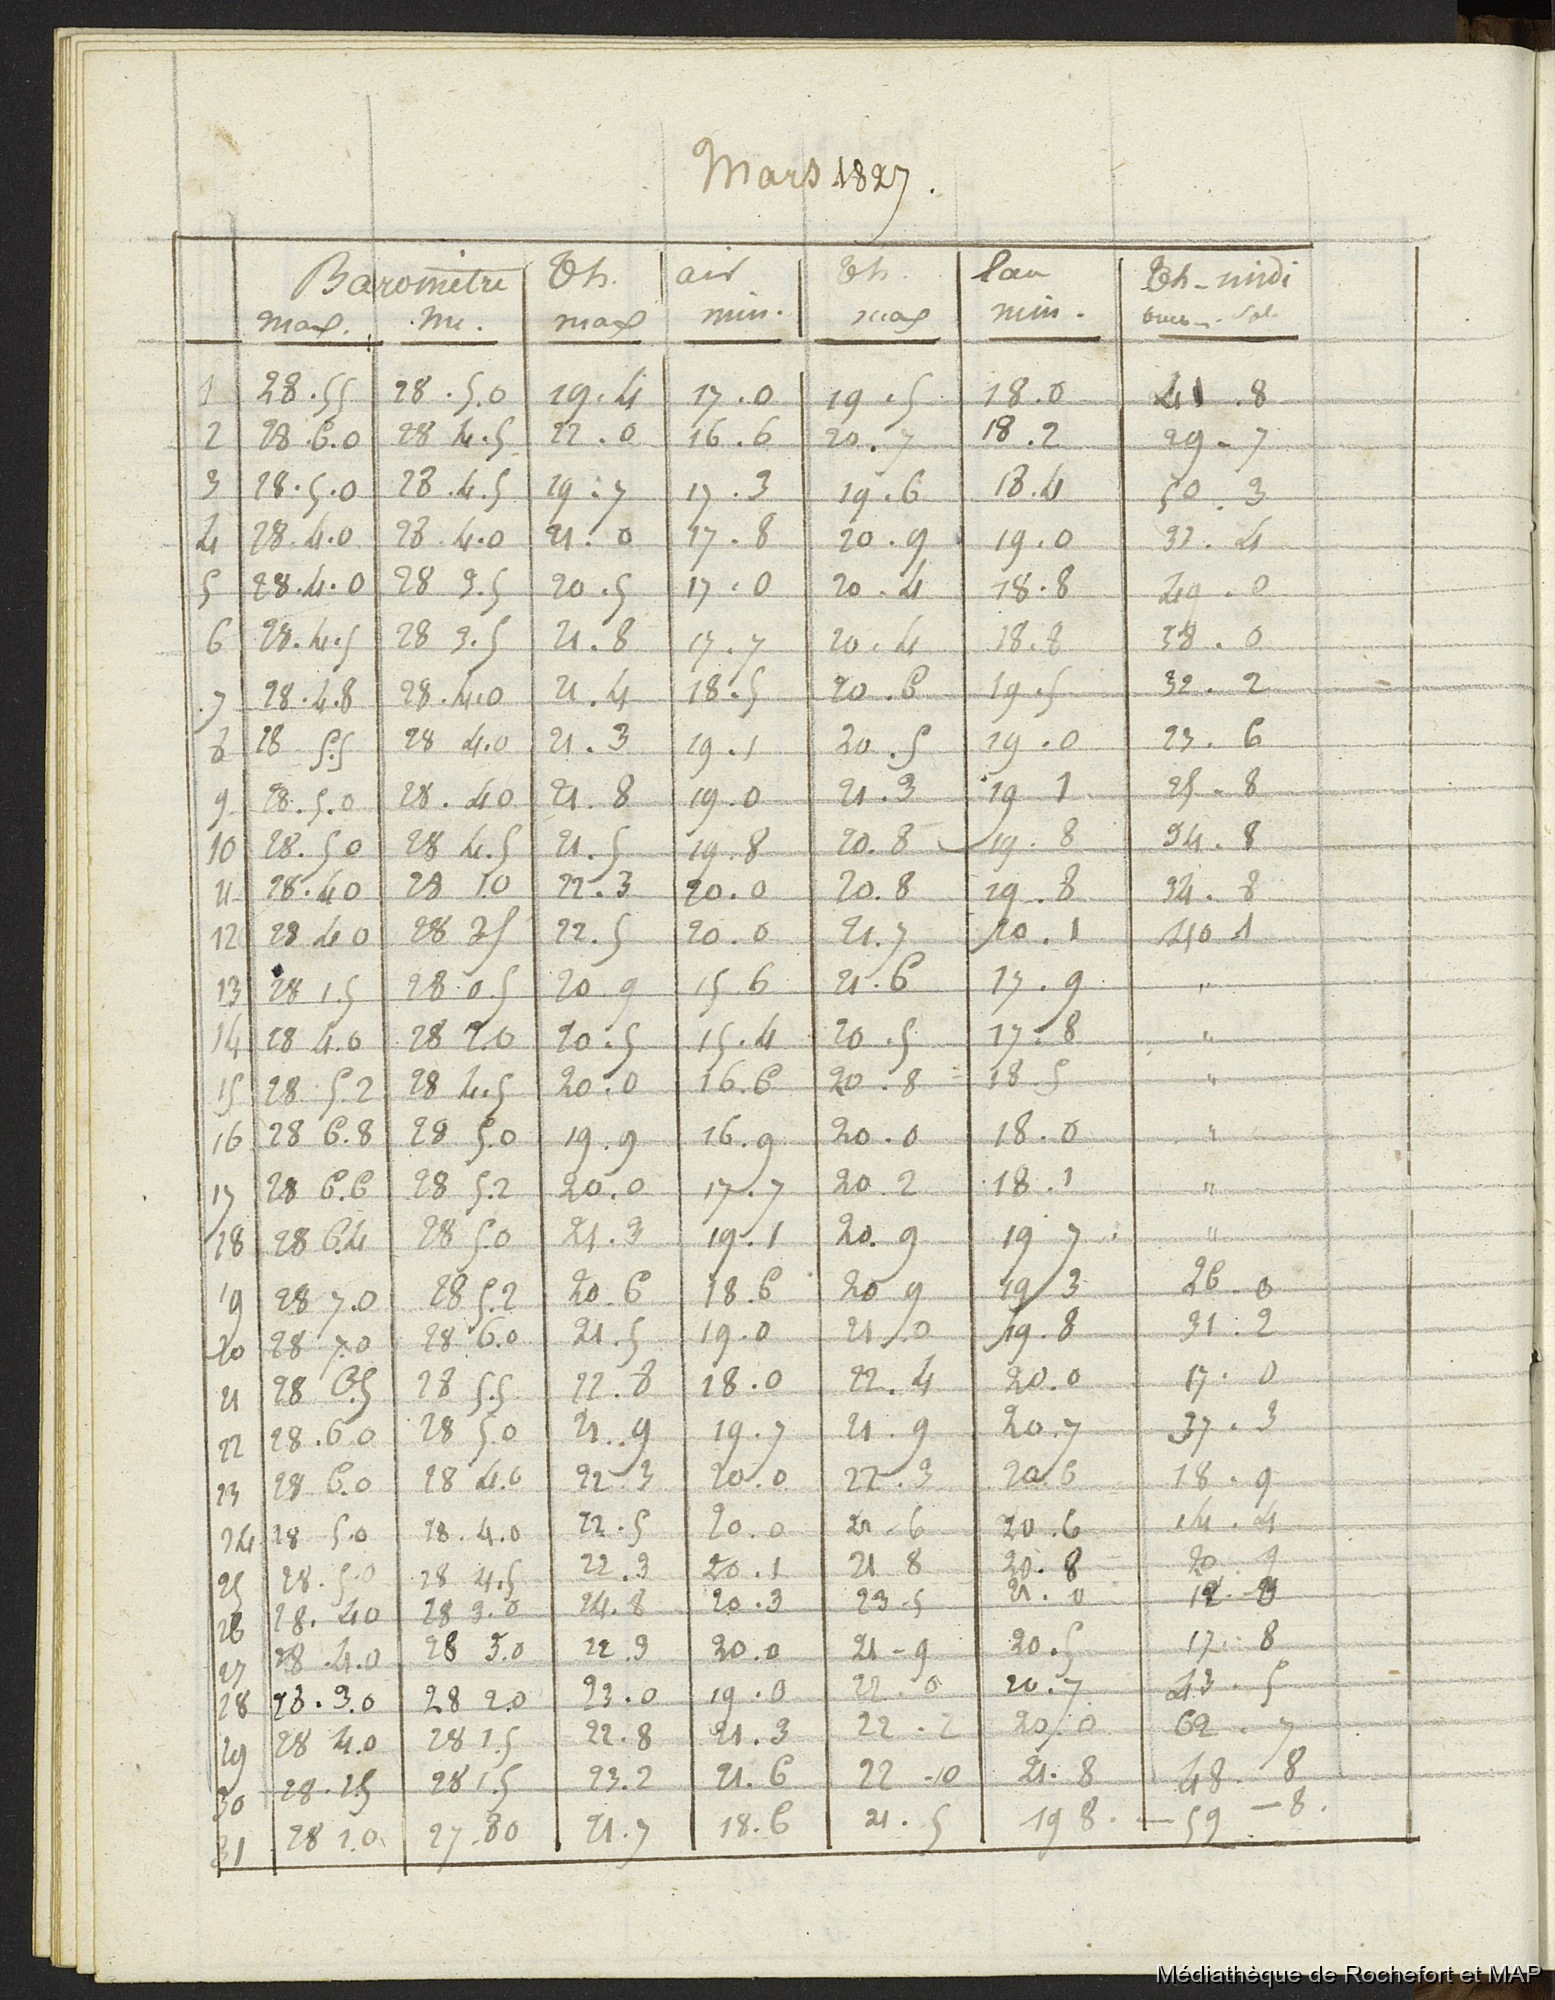 Mars 1827.
Barometre Th. air Th. l'au Th - midi
max. mi. max min. max min.
1 28.55 28.5.0 19.4 17.0 19.5 18.0 41.8
2 28 6.0 28 4.5 22.0 16.6 20.7 18.2 29.7
3 28.5.0 28.4.5 19.7 17.3 19.6 18.4 50.3
4 28.4.0 28.4.0 21.0 17.8 20.9 19.0 32.4
5 28.4.0 28 3.5 20.5 17.0 20.4 18.8 49.0
6 28.4.5 28 3.5 21.8 17.7 20.4 18.8 38.0
7 28.4.8 28.4.0 21.4 18.5 20.6 19.5 32.2
8 28 5.5 28 4.0 21.3 19.1 20.5 19.0 23.6
9 28.5.0 28.40 21.8 19.0 21.3 19 1 25.8
10 28.50 28 4.5 21.5 19.8 20.8 19.8 34.8
11 28.40 28 1.0 22.3 20.0 20.8 19.8 34.8
12 28 40 28 25 22.5 20.0 21.7 20.1 40 1
13 28 1.5 28 0.5 20.9 15.6 21.6 17.9 "
14 28 4.0 28 2.0 20.5 15.4 20.5 17.8 "
15 28 5.2 28 4.5 20.0 16.6 20.8 18 5 "
16 28 6.8 28 5.0 19.9 16.9 20.0 18.0 "
17 28 6.6 28 5.2 20.0 17.7 20.2 18.1 "
18 28 6.4 28 5.0 21.3 19.1 20.9 19 7 "
19 28 7.0 28 5.2 20.6 18.6 20 9 19 3 26.0
20 28 7.0 28 6.0 21.5 19.0 21.0 19.8 31.2
21 28 6.5 28 5.5 22.8 18.0 22.4 20.0 17.0
22 28.60 28 5.0 21.9 19.7 21.9 20.7 37.3
23 28 6.0 28 4.0 22.3 20.0 22.3 20.6 18.9
24 28 5.0 28.4.0 22.5 20.0 21-6 20.6 14.4
25 28.5.0 28 4.5 22.3 20.1 21 8 20.8 20
26 28.40 28 3.0 24.8 20.3 23-5 21.0 12
27 28.4.0 28 3.0 22.3 20.0 21-9 20.5 17.8
28 28.3.0 28 2.0 23.0 19.0 22.0 20.7 43.5
29 28 4.0 28 1.5 22.8 21.3 22.2 20.0 62.7
30 28.15 28 1.5 23.2 21.6 22-10 21.8 48-8
31 28 1.0 27.80 21.7 18.6 21.5 19 8. - 59 - 8.
Médiathèque de Rochefort et MAP